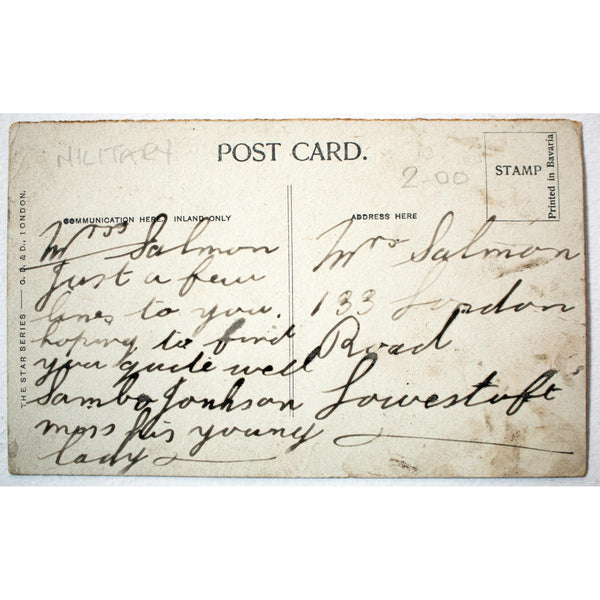 MILITARY
POST CARD.
2-00
STAMP
Printed in Bavaria
THE STAR SERIES — G. D. & D., LONDON.
COMMUNICATION HERE, INLAND ONLY
Mrss Salmon
Just a few
lines to you.
hoping to find
you quite well
Sambo Jonhson
miss his young
lady
ADDRESS HERE
Mrs Salmon
133 London
Road
Lowestoft